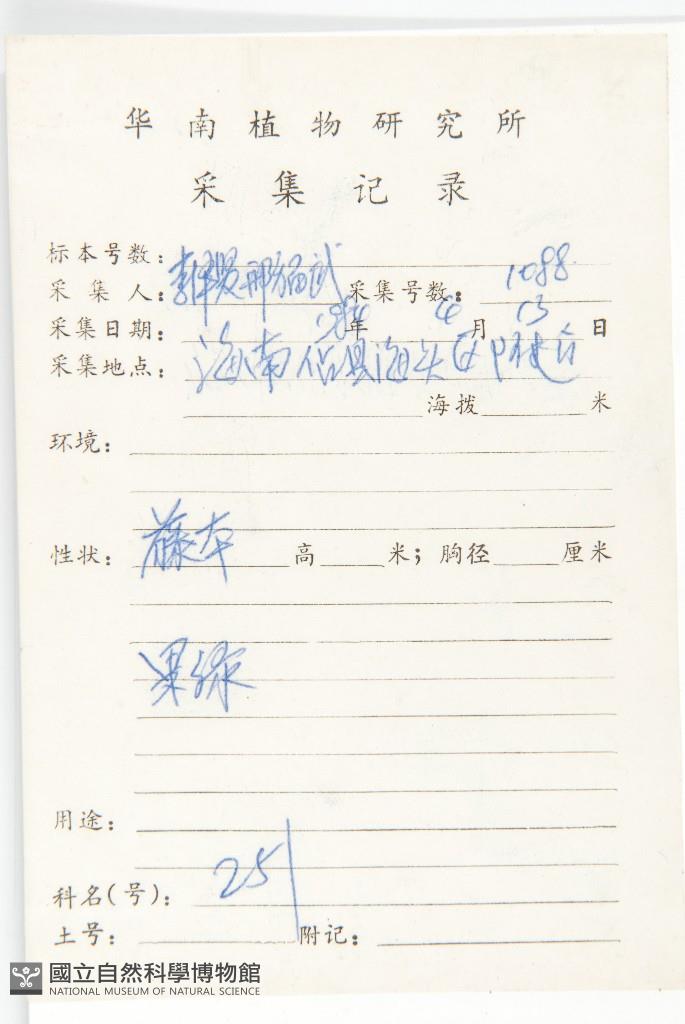 华南植物研究所
采集记录
标本号数：
采集人：李泽贤 邢福武 采集号数：1088
采集日期： 年 4 月 13 日
采集地点：海南 县海头
海拨 米
环境：
性状：藤本 高 米；胸径 厘米
果绿
用途：
科名(号)：251
土号： 附记：
國立自然科學博物館
NATIONAL MUSEUM OF NATURAL SCIENCE